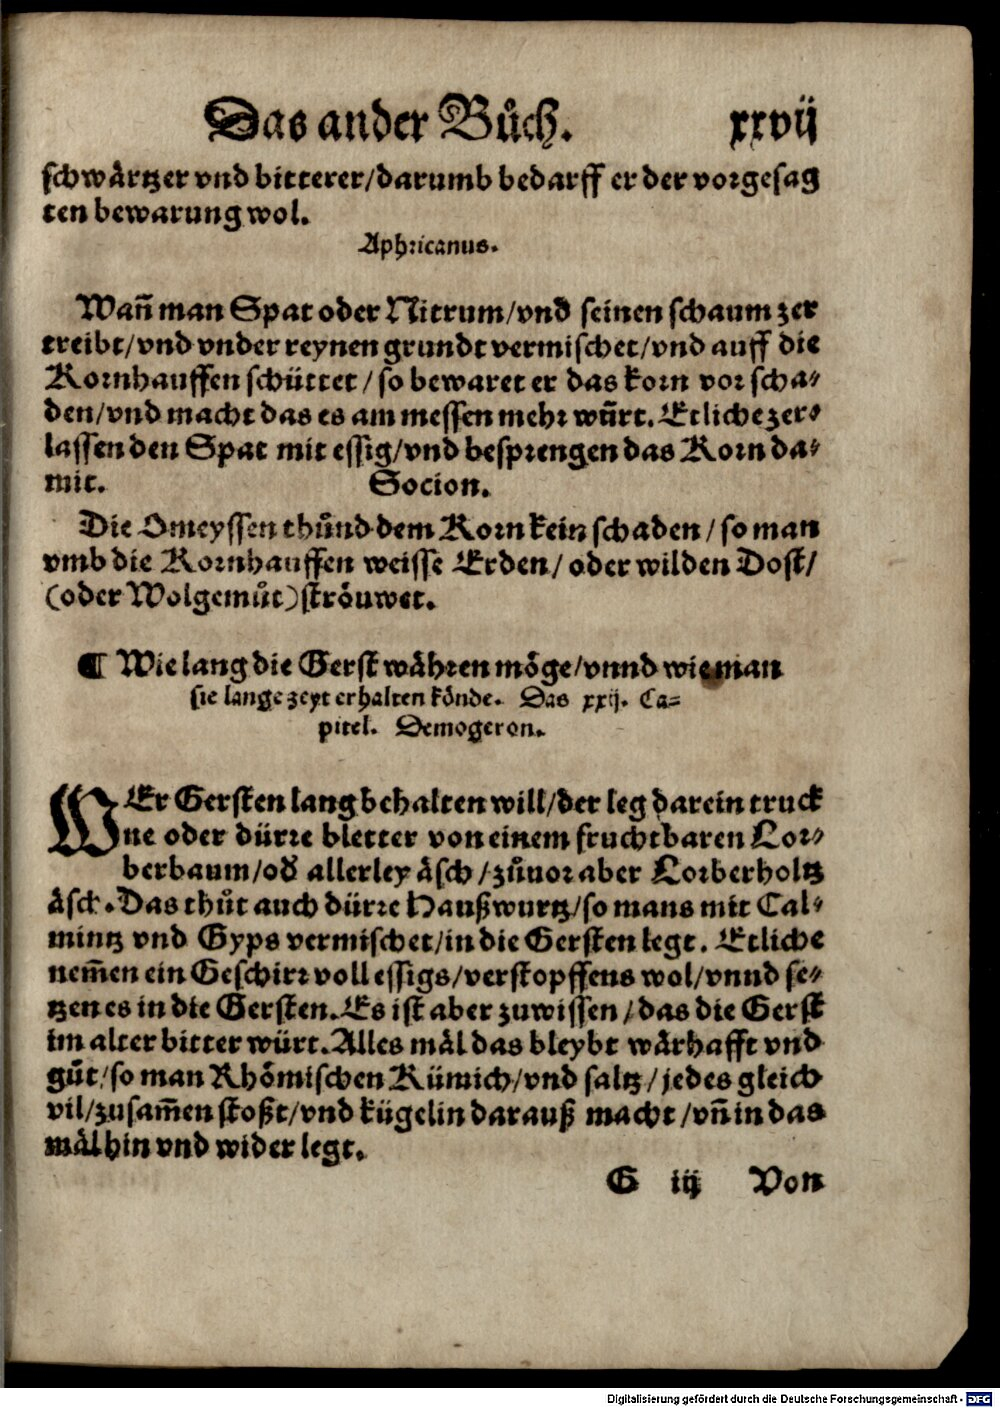 Das ander Bůch. xxvij
schwärtzer vnd bitterer/darumb bedarff er der vorgesag
ten bewarung wol.
Aphricanus.
Wañ man Spat oder Nitrum/vnd seinen schaum zer
treibt/vnd vnder reynen grundt vermischet/vnd auff die
Kornhauffen schüttet/so bewaret er das korn vor scha⸗
den/vnd macht das es am messen mehr wũrt. Etliche zer⸗
lassen den Spat mit essig/vnd besprengen das Korn da⸗
mit. Socion.
Die Omeyssen thůnd dem Korn kein schaden/so man
vmb die Kornhauffen weisse Erden/oder wilden Dost/
(oder Wolgemůt) ströuwet.
¶ Wie lang die Gerst währen möge/vnnd wie man
sie lange zeyt erhalten könde. Das xxij. Ca⸗
pitel. Demogeron.
WEr Gersten lang behalten will/der leg darein truck
ne oder dürre bletter von einem fruchtbaren Lor⸗
berbaum/oď allerley äsch/zůuor aber Lorberholtz
äsch. Das thůt auch dürre Haußwurtz/so mans mit Cal⸗
mintz vnd Gyps vermischet/in die Gersten legt. Etliche
nem̃en ein Geschirr voll essigs/verstopffens wol/vnnd se⸗
tzen es in die Gersten. Es ist aber zuwissen/das die Gerst
im alter bitter würt. Alles mäl das bleybt wärhafft vnd
gůt/so man Rhömischen Kümich/vnd saltz/jedes gleich
vil/zusam̃en stoßt/vnd kügelin darauß macht/vñ in das
mäl hin vnd wider legt.
G iij Von
Digitalisierung gefördert durch die Deutsche Forschungsgemeinschaft - DFG